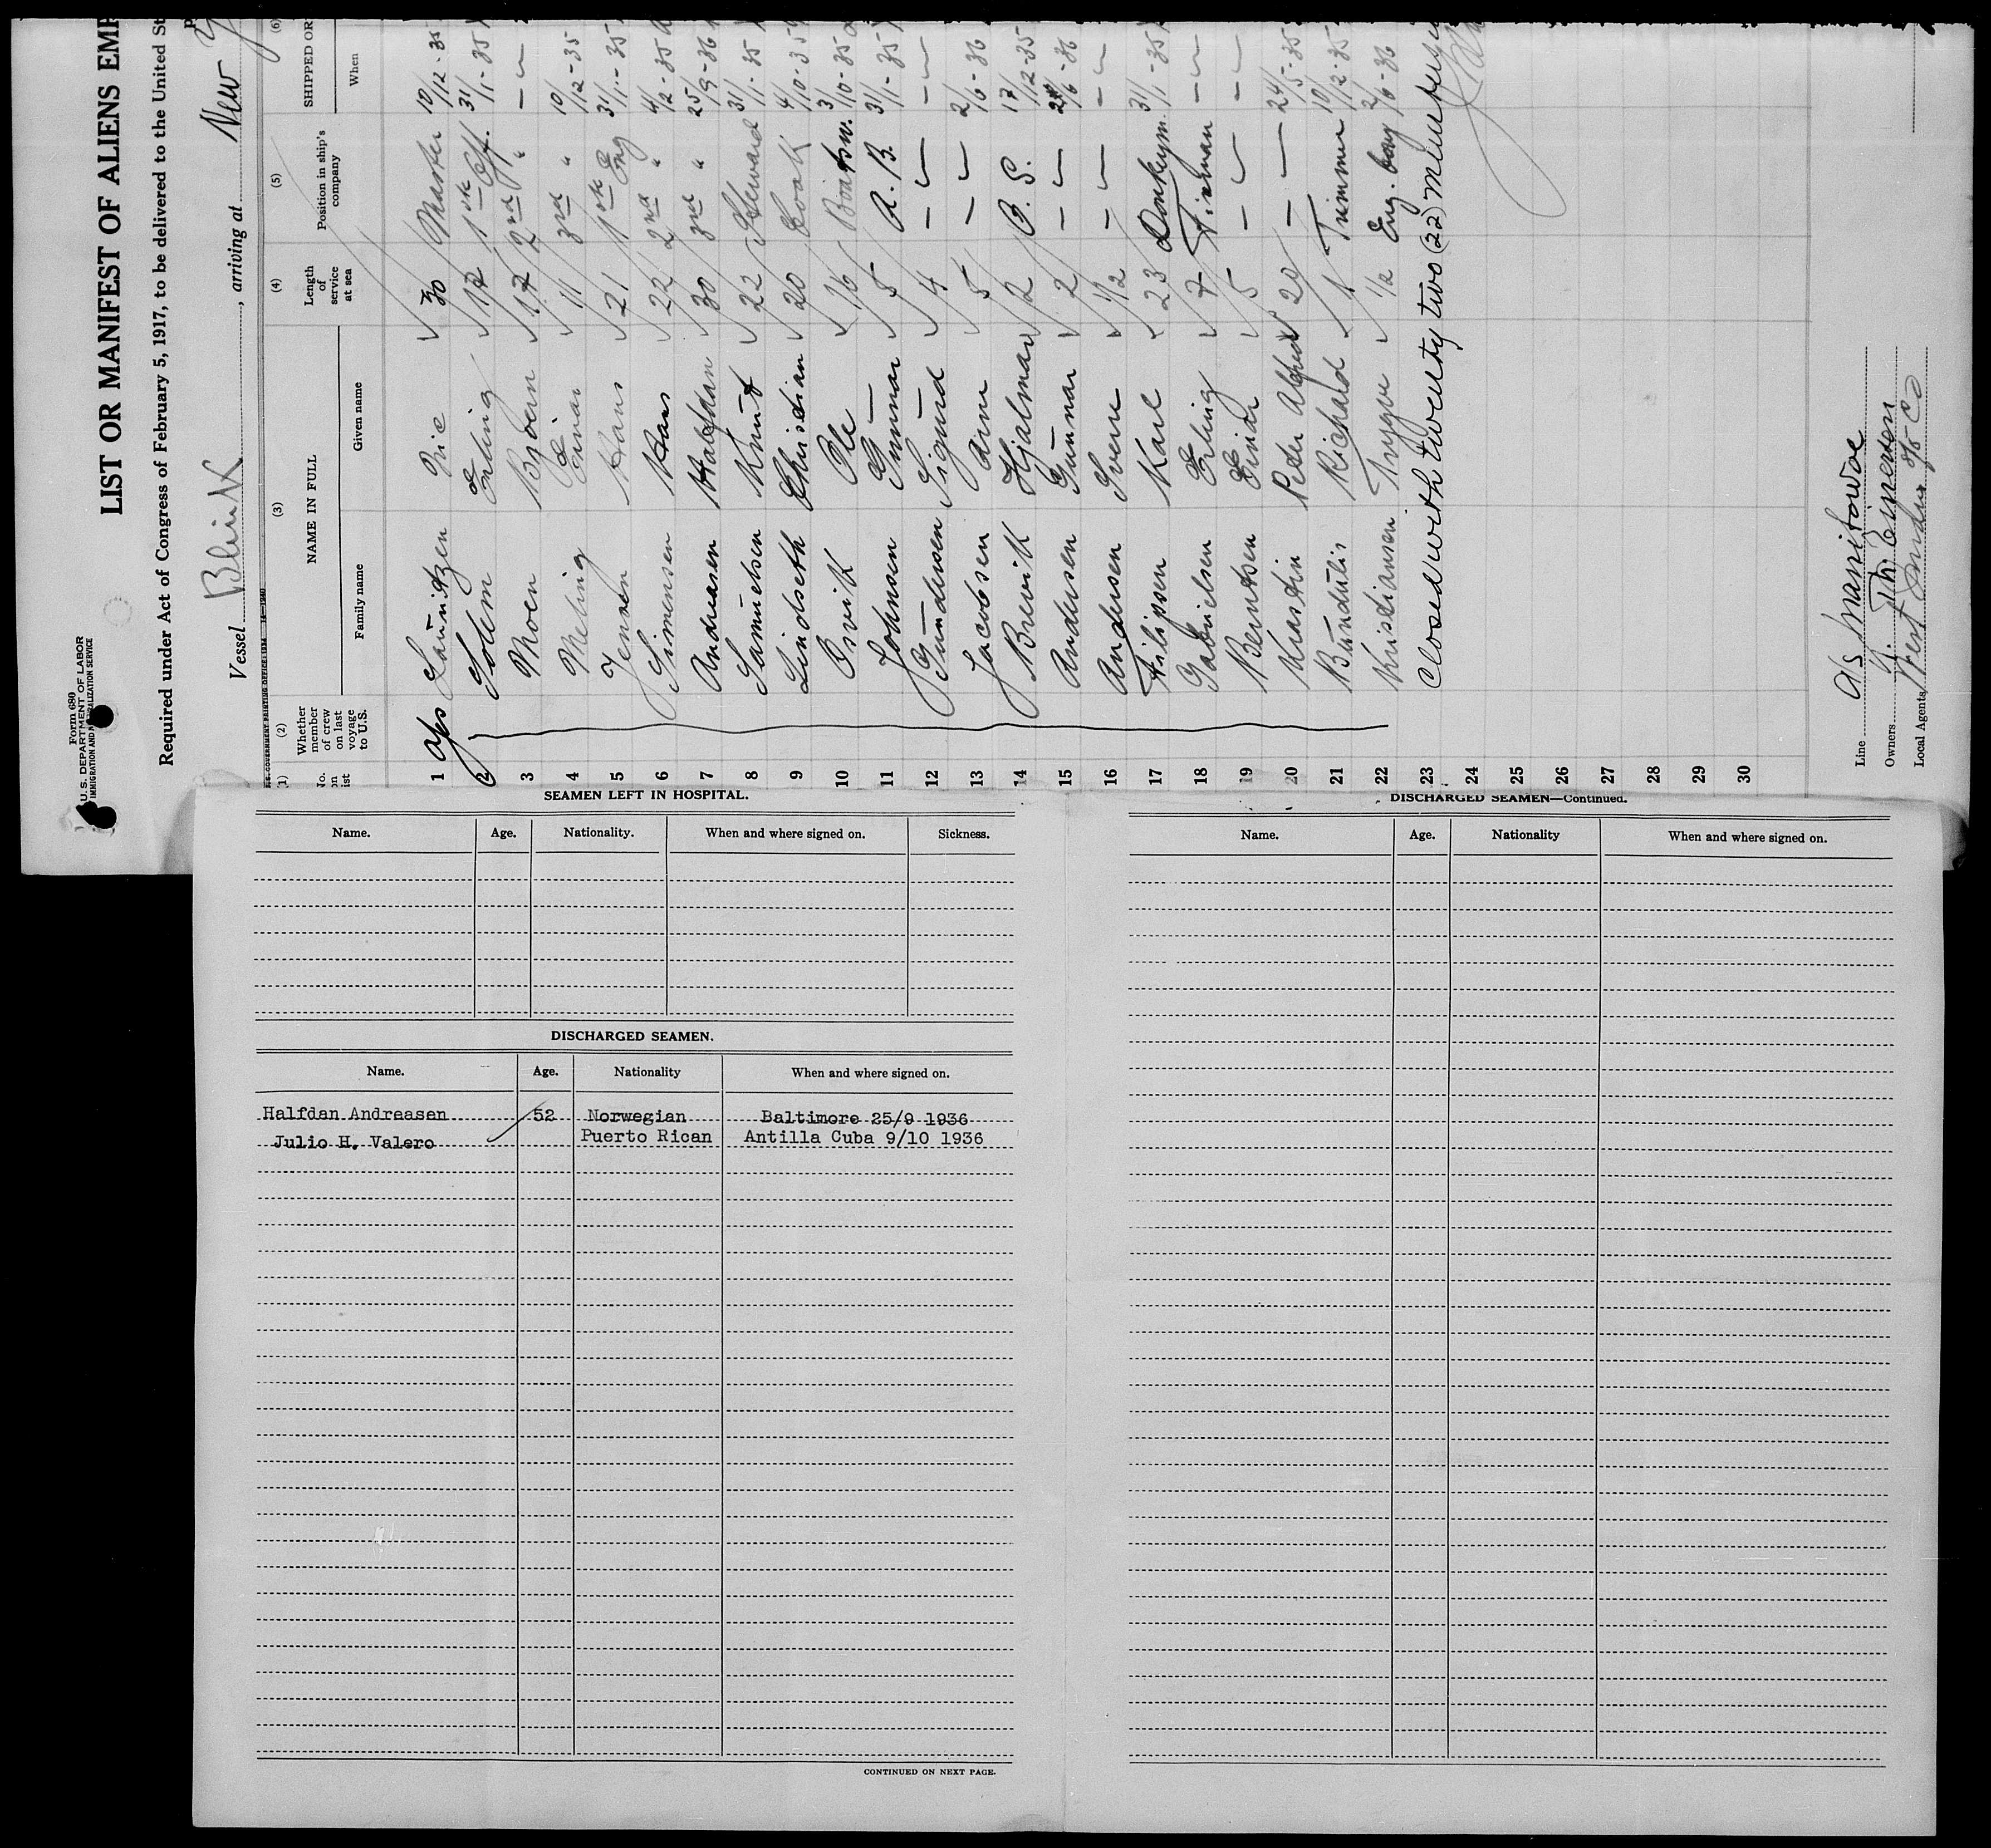 Form 680
U. S. DEPARTMENT OF LABOR
IMMIGRATION AND NATURALIZATION SERVICE
LIST OR MANIFEST OF ALIENS EMP
Required under Act of Congress of February 5, 1917, to be delivered to the United St
Vessel Blink, arriving at New
(1) (2) (3) (4) (5) (6)
No. on list
Whether member of crew on last voyage to U.S.
NAME IN FULL
Family name Given name
Length of service at sea
Position in ship's company
SHIPPED OR
When
1 Launitzen 30 Master 10/12-35
2 Solem Erling 17 1st Off. 31/1-35
3 Moen Bjoern 17 2nd " — —
4 Meling Einar 11 3rd " 10/12-35
5 Jensen Hans 21 1st Eng 31/1-35
6 Simensen Hans 22 2nd " 4/12-35
7 Andreasen Halfdan 30 3rd " 25/9-36
8 Samuelsen Knut 22 Steward 31/1-35
9 Lindseth Christian 20 Cook 4/10-35
10 Ole 16 Boatsw. 3/10-35
11 Johnsen Gunnar 5 A. B. 31/1-35
12 Gundersen Sigurd 4 — — — —
13 Jacobsen Arne 5 — — 2/6-36
14 Brevik Hjalmar 2 O. S. 17/12-35
15 Andersen Gunnar 2 — — 2/6-36
16 Andersen Sverre 1/2 — — — —
17 Filipsen Karl 23 Donkeym. 31/1-35
18 Gabrielsen Erling 7 Fireman — —
19 Berntsen Einar 5 — — — —
20 Krastin Peter Alfred 20 — — 24/5-35
21 Bundulis Richard 1 Trimmer 10/12-35
22 Kristiansen Trygve 1/2 Eng. boy 2/6-36
23 Closed with twenty two (22) members
24
25
26
27
28
29
30
Line
Owners
Local Agents
SEAMEN LEFT IN HOSPITAL.
Name. Age. Nationality. When and where signed on. Sickness.
DISCHARGED SEAMEN.
Name. Age. Nationality When and where signed on.
Halfdan Andreasen 52 Norwegian Baltimore 25/9 1936
Julio H. Valero Puerto Rican Antilla Cuba 9/10 1936
CONTINUED ON NEXT PAGE.
DISCHARGED SEAMEN—Continued.
Name. Age. Nationality When and where signed on.